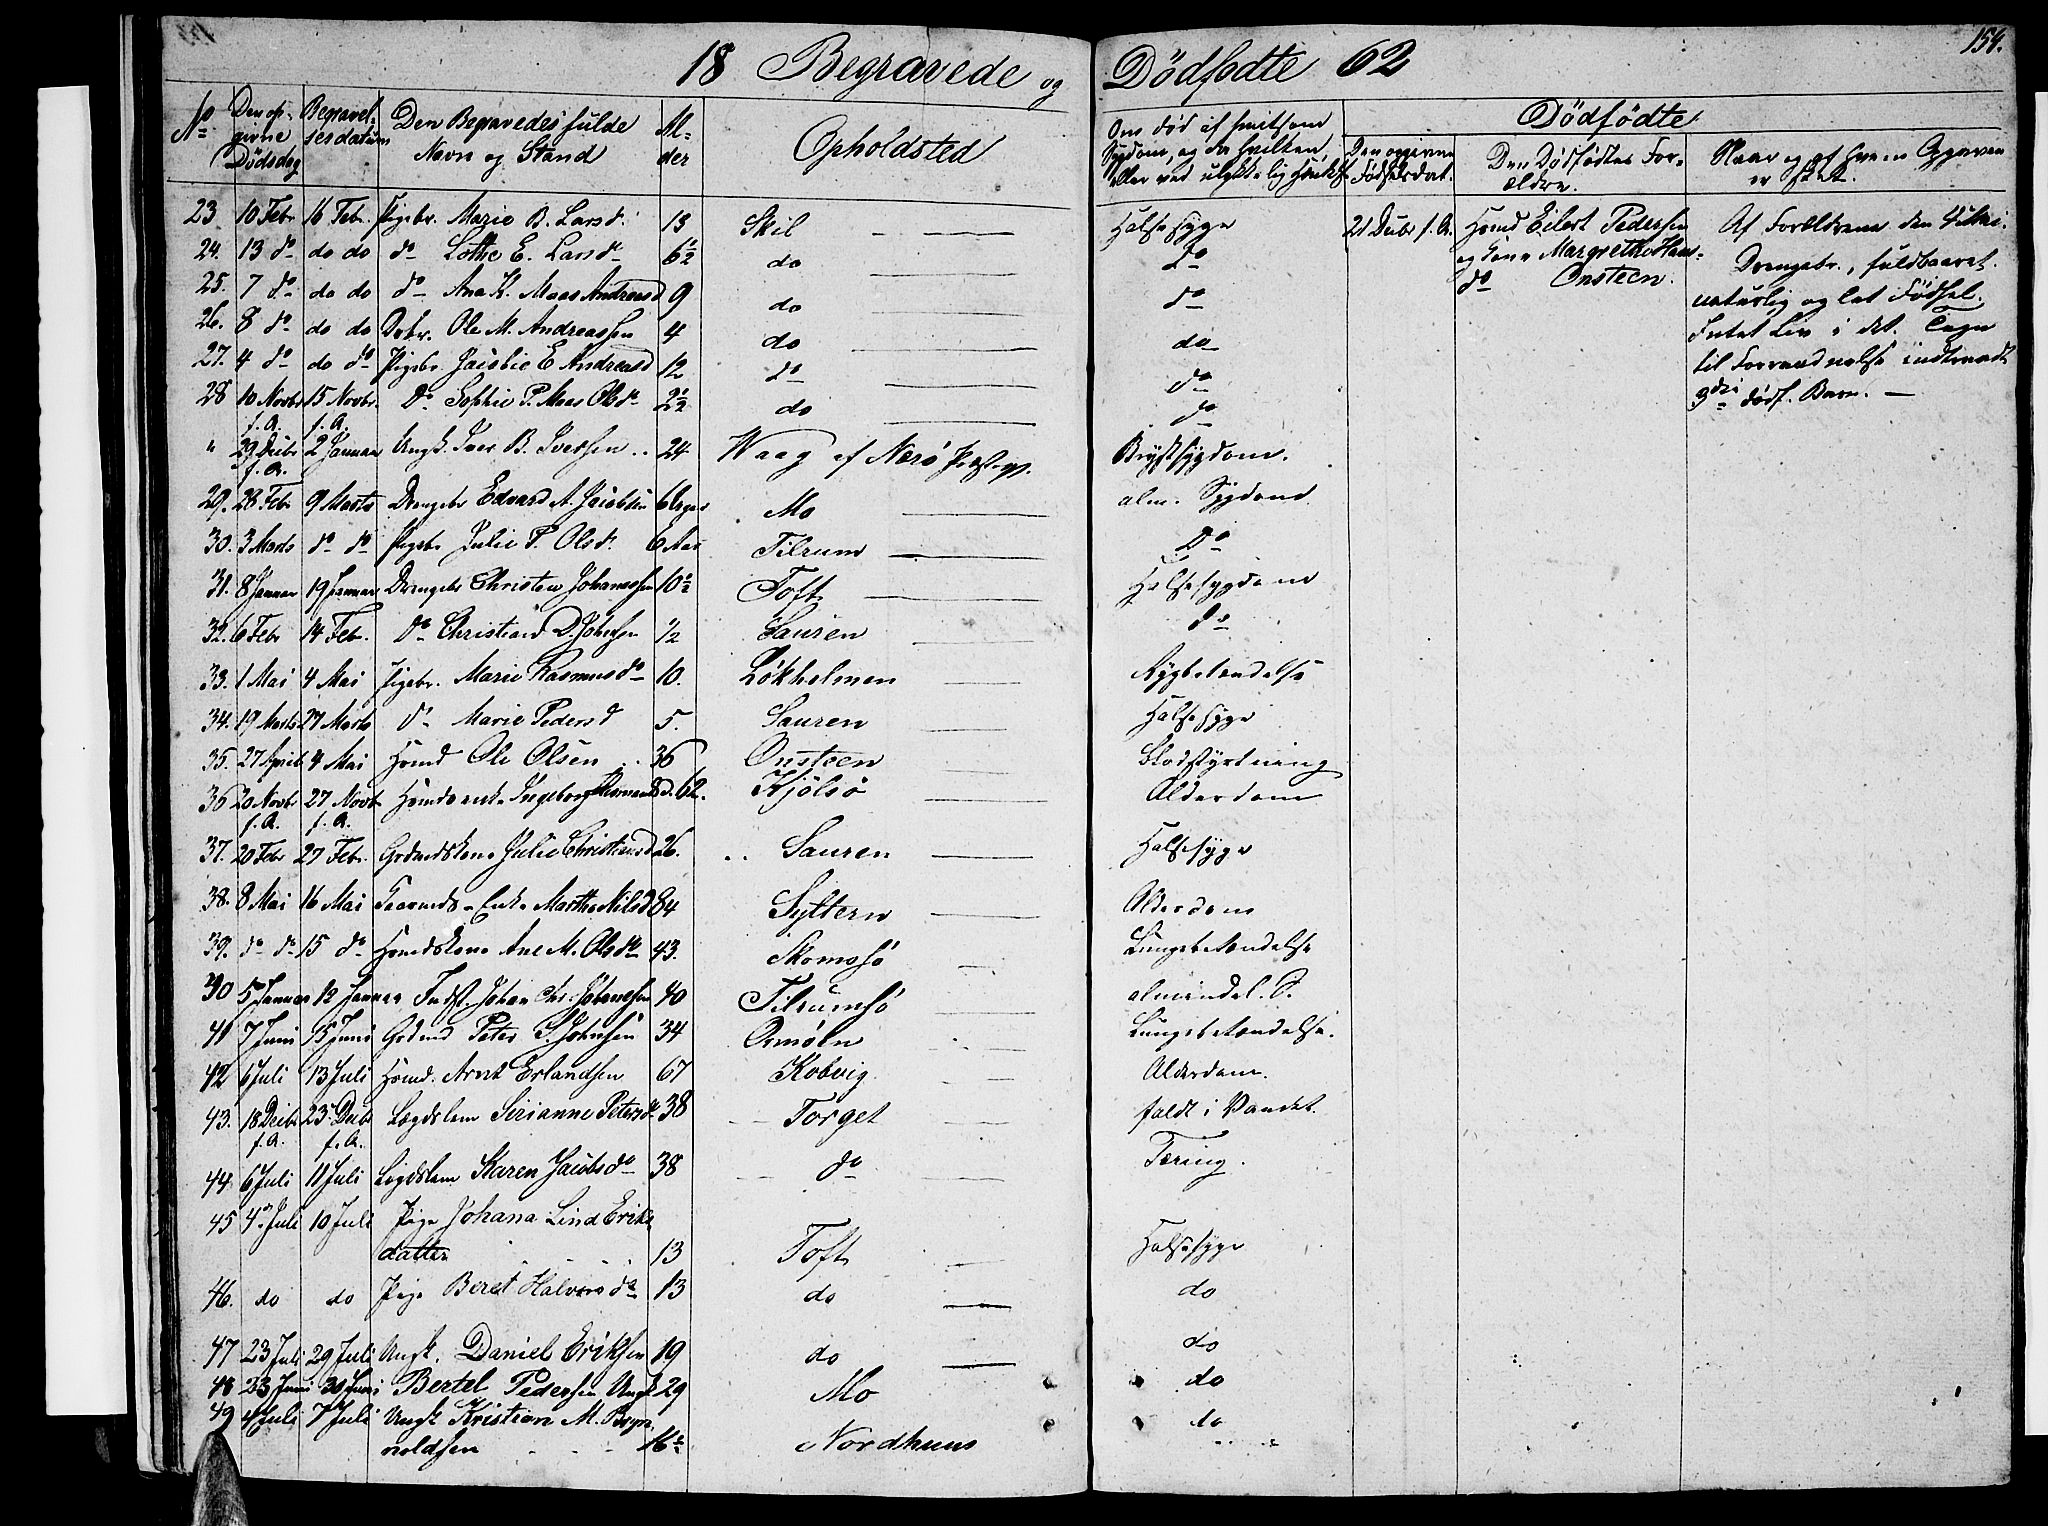 154.
18 Begravede og Dödfødte 62
No
Den op-
givne
Dödsdag
Begravel-
sesdatum
Den Begravedes fulde
Navn og Stand
Al-
der
Opholdsted
Om død af smitsom
Sygdom, og da hvilken,
eller ved ulykkelig Hændelse
Dödfödte
Den opgivne
Fødselsdat.
Den Dödfödtes For-
ældre.
Naar og af hvem Opgaven
er skeet.
23 10 Febr 16 Febr. Pigebr. Marie B. Larsd. 13 Skil Halsesyge
24. 13 do do do do Lothe E. Larsdr 6½ do Do
25. 7 do do do do Ana K. Maas Andreasd 9 do do
26. 8 do do do Drbr. Ole M. Andreassen 4 do do
27. 4 do do do Pigebr Jacobie E Andreasd 12 do do
28 10 Novbr 15 Novbr. Do Sophie P. Maas Olsdr 2½ do do
f. A. f. A.
" 29 Decbr 2 Januar Ungk. Iver B. Iversen 24 Waag af Nærö Præstegj. Brystsygdom.
f. A.
29. 28 Febr 9 Marts Drengebr Edvard A. Jacobsen 6 Uger Mo alm. Sygdom
30. 3 Marts do do Pigebr Julie P. Olsdr. 6 Aar Tilrum Do
31. 8 Januar 19 Januar Drengebr Christen Johanssen 10½ Toft Halsesygdom
32. 6 Febr 14 Febr. Do Christian D. Johnsen ½ Sauren do
33. 1 Mai 4 Mai Pigebr. Marie Rasmusdr 10. Løkholmen Rygbetændelse
34. 19 Marts 27 Marts do Marie Pedersd 5. Sauren Halsesyge
35. 27 April 4 Mai Hsmd Ole Olsen 36 Onsteen Blodstyrtning
36 20 Novbr 27 Novbr Hsmdsenke Ingeborg d. 62. Kjölsö Alderdom
f. A. f. A.
37. 20 Febr 27 Febr. Grdmdskone Julie Christiansd 26. Sauren Halsesyge
38. 8 Mai 16 Mai Gaarmds-Enke Marthe Nilsd 84 Syltern Alderdom
39. do do 15 do Hsmdskone Ane M. Olsdr 43. Skomsö Lungebetændelse
30 5 Januar 12 Januar Indst. Johan Chr. Johnesen 40 Tilrumsö almindel. S.
41 7 Juni 15 Juni Grdmd Peter I. Johnsen 34 Ormöln Lungebetændelse.
42 6 Juli 13 Juli Hsmd. Arnt Erlandsen 67 Kobvig Alderdom.
43. 18 Decbr 23 Decbr Lægdslem Serianne Petersdr 38 Torget faldt i Vandet.
f. A. f. A.
44. 6 Juli 11 Juli Lægdslem Karen Jacobsdr 38 do Tæring.
45 4 Juli 10 Juli Pige Johana Lind Eriks
datter 13 Toft Halsesyge
46. do do Pige Beret Halvorsdr 13 do do
47 23 Juli 29 Juli Ungk. Daniel Eriksen 19 do do
48 23 Juni 30 Juni Bertel Pedersen Ungk 29 Mo do
49 4 Juli 7 Juli Ungk Kristian M. Bryn
noldsen 16½ Nordhuus do
21 Decbr f. A.
Hsmd Eilert Pedersen
og Kone Margrethe Hans-
do Onsteen.
Af Forældrene den
Drengebr., fuldbaaret.
naturlig og let Födsel.
Intet Liv i det. Tegn
til Forraadnelse indtraadt
3die dødf. Barn. —